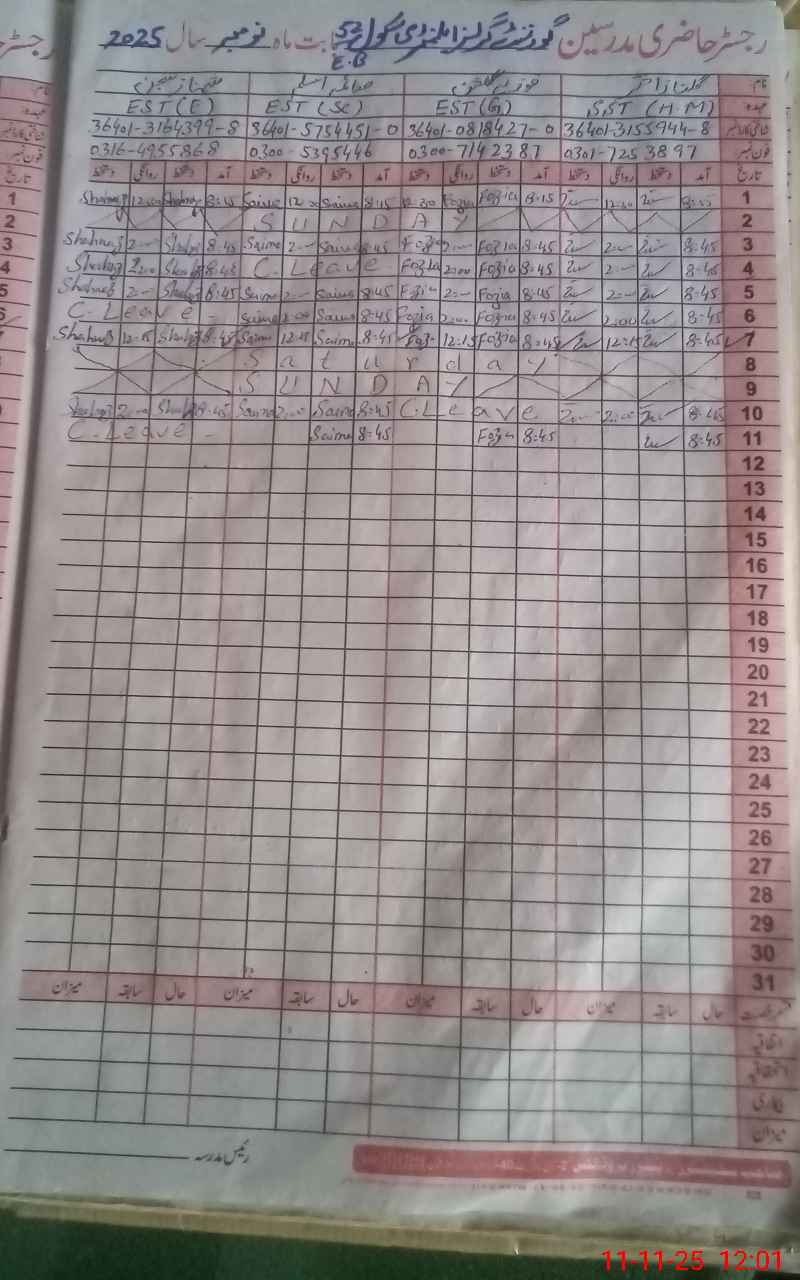 رجسٹر حاضری مدرسین گورنمنٹ گرلز ایلیمنٹری سکول 52 E.B بابت ماہ نومبر سال 2025
نام گلناز اختر فوزیہ صائمہ اسلم شہناز
عہدہ S.ST (H.M) EST (G) EST (Sc) EST (E)
شناختی کارڈ نمبر 36401-3155944-8 36401-0818427-0 36401-5754451-0 36401-3164399-8
فون نمبر 0301-7253897 0300-7142387 0300-5395446 0316-4955868
تاریخ آمد دستخط روانگی دستخط آمد دستخط روانگی دستخط آمد دستخط روانگی دستخط آمد دستخط روانگی دستخط
Shahnaz 12:00 Shahnaz 8:15 Saima 12:00 Saima 8:15 12:30 Fozia Fozia 8:15 12:30 1
SUNDAY 2
Shahnaz 2:— Shahnaz 8:45 Saima 2:— Saima 8:45 Fozia 2:— Fozia 8:45 2:— 8:45 3
Shahnaz 2:00 Shahnaz 8:45 C.Leave Fozia 2:00 Fozia 8:45 2:— 8:45 4
Shahnaz 2:— Shahnaz 8:45 Saima 2:— Saima 8:45 Fozia 2:— Fozia 8:45 2:— 8:45 5
C.Leave – Saima 2:00 Saima 8:45 Fozia 2:00 Fozia 8:45 2:00 8:45 6
Shahnaz 12:15 Shahnaz 8:45 Saima 12:15 Saima 8:45 Fozia 12:15 Fozia 8:45 12:15 8:45 7
Saturday 8
SUNDAY 9
Shahnaz 2:00 Shahnaz 8:45 Saima 2:00 Saima 8:45 C.Leave 2:00 8:45 10
C.Leave – Saima 8:45 Fozia 8:45 8:45 11
12
13
14
15
16
17
18
19
20
21
22
23
24
25
26
27
28
29
30
31
قسم رخصت حال سابقہ میزان حال سابقہ میزان حال سابقہ میزان حال سابقہ میزان
اتفاقیہ
استحقاقیہ
بیماری
میزان
رئیس مدرسہ
11-11-25 12:01